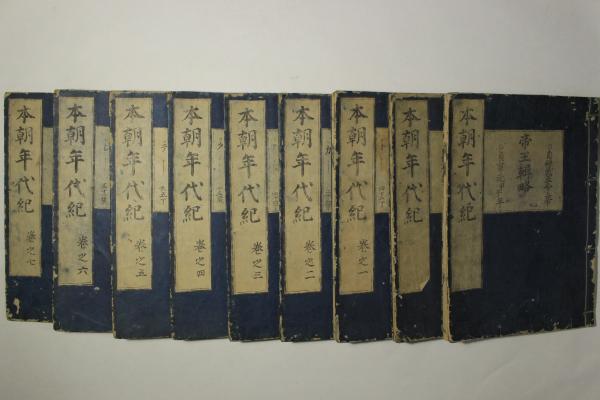 本朝年代紀
帝王輯略
本朝年代紀
本朝年代紀 卷之一
本朝年代紀 卷之二
本朝年代紀 卷之三
本朝年代紀 卷之四
本朝年代紀 卷之五
本朝年代紀 卷之六
本朝年代紀 卷之七